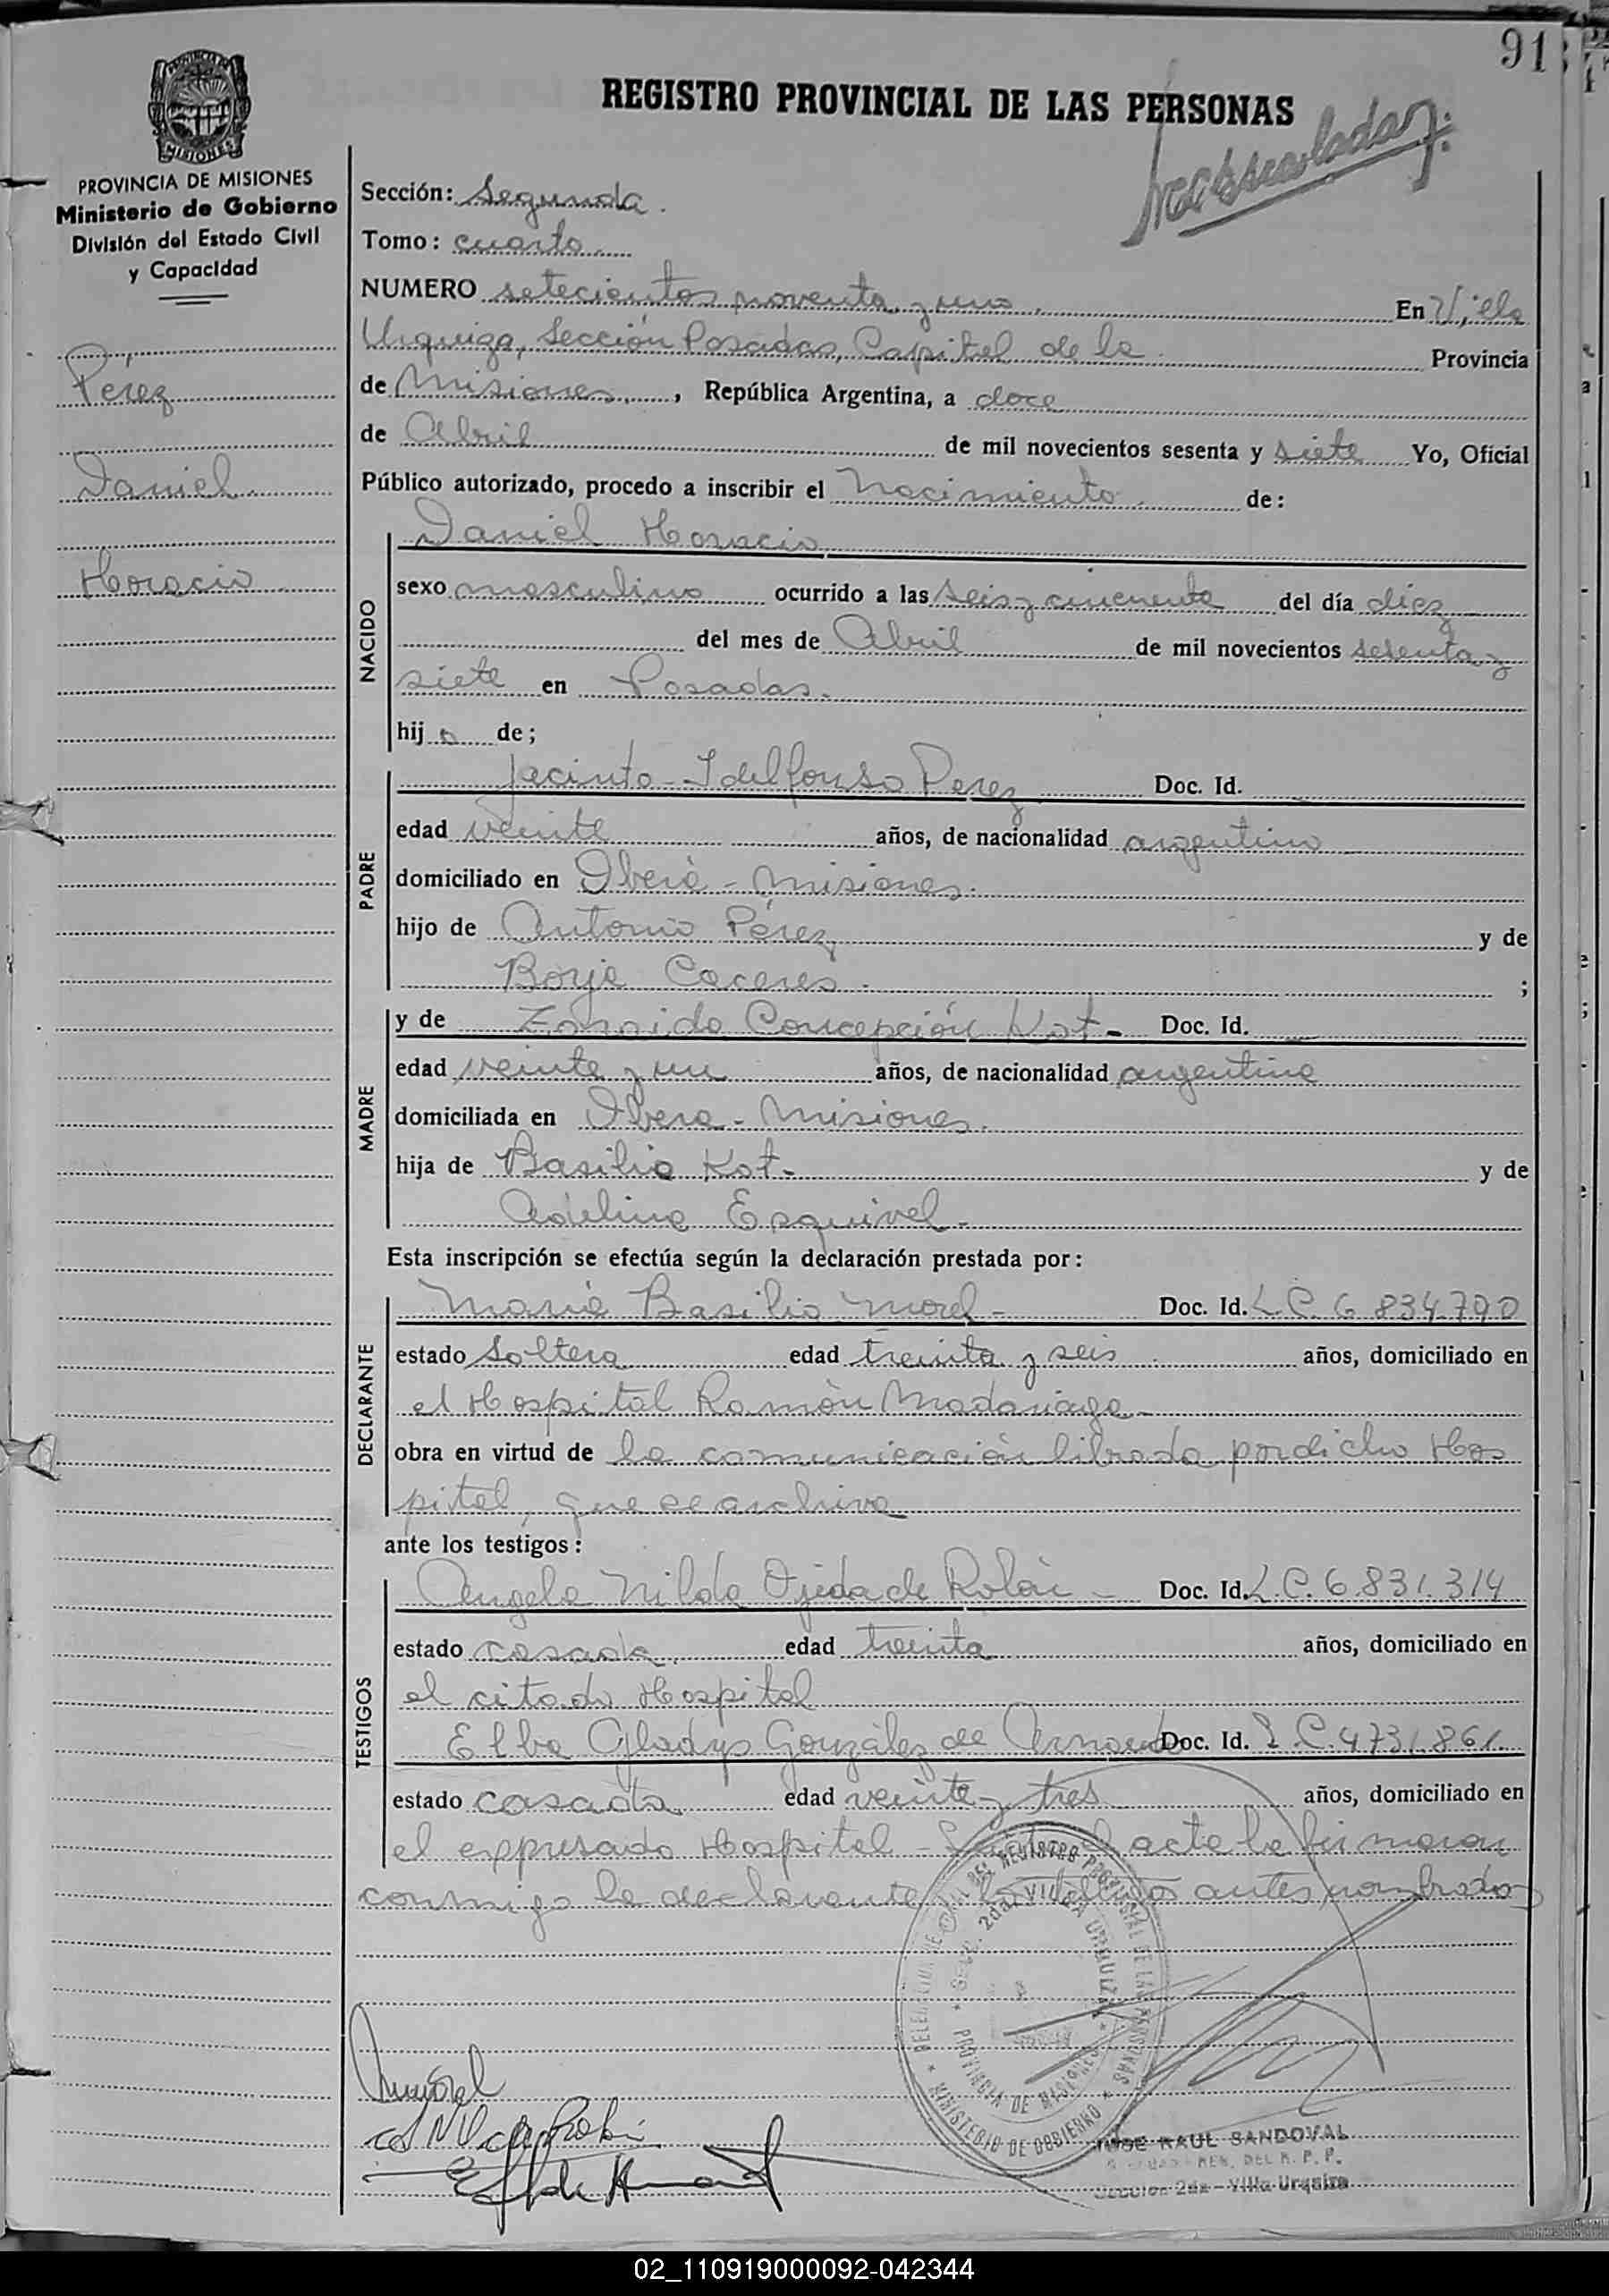 91
REGISTRO PROVINCIAL DE LAS PERSONAS
MISIONES
PROVINCIA DE MISIONES
Ministerio de Gobierno
División del Estado Civil
y Capacidad
Pérez
Daniel
Horacio
Sección: Segunda.
Tomo: cuarto
NUMERO setecientos noventa y uno. En Villa
Urquiza, Sección Posadas, Capital de la Provincia
de Misiones, República Argentina, a doce
de Abril de mil novecientos sesenta y siete Yo, Oficial
Público autorizado, procedo a inscribir el Nacimiento de:
NACIDO
Daniel Horacio
sexo masculino ocurrido a las seis y cincuenta del día diez
del mes de Abril de mil novecientos sesenta y
siete en Posadas.
hij o de;
PADRE
Jacinto Idelfonso Perez Doc. Id.
edad veinte años, de nacionalidad argentino
domiciliado en Iberá - Misiones.
hijo de Antonio Pérez y de
Borja Caceres. ;
MADRE
y de Zoraida Concepción Kot - Doc. Id.
edad veinte y un años, de nacionalidad argentina
domiciliada en Ibera - Misiones.
hija de Basilio Kot - y de
Adelina Esquivel -
Esta inscripción se efectúa según la declaración prestada por:
DECLARANTE
María Basilia Morel - Doc. Id. L C 6 834.790
estado Soltera edad treinta y seis años, domiciliado en
el Hospital Ramón Madariaga -
obra en virtud de la comunicación librada por dicho Hos
pital, que se archiva
ante los testigos:
TESTIGOS
Angela Nilda Ojeda de Rolón - Doc. Id. L.C. 6.831.314
estado casada edad treinta años, domiciliado en
el citado Hospital
Elba Gladys González de Doc. Id. L.C. 4731.861
estado casada edad veinte y tres años, domiciliado en
el expresado Hospital - acta la firmaron
conmigo la declarante testigos antes nombrados
DEL REGISTRO PROVINCIAL DE LAS PERSONAS
MINISTERIO DE GOBIERNO
2da. VILLA URQUIZA
PROVINCIA DE MISIONES
JOSE RAUL SANDOVAL
DEL R. P. P.
Sección 2da - Villa Urquiza
02_110919000092-042344